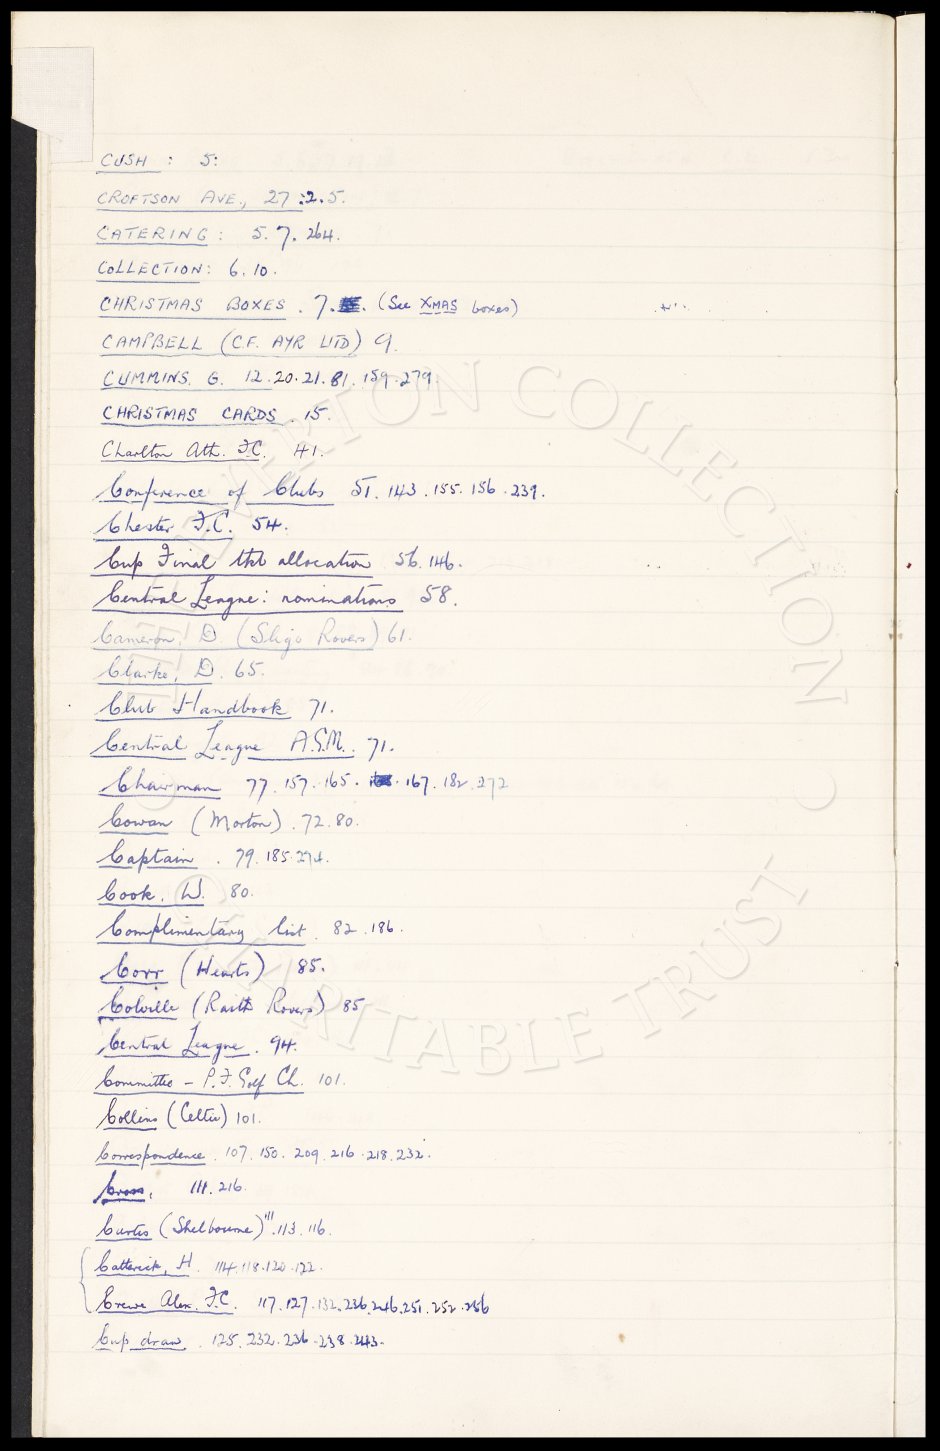 CUSH : 5:
CROFTSON AVE., 27 :2.5.
CATERING : 5. 7. 264.
COLLECTION: 6. 10.
CHRISTMAS BOXES . 7. . (See XMAS boxes)
CAMPBELL (C.F. AYR UTD) 9.
CUMMINS. G. 12.20.21.81.159.279
CHRISTMAS CARDS. 15.
Charlton Ath. F.C. 41.
Conference of Clubs 51. 143. 155. 156. 239.
Chester F.C. 54.
Cup Final tkt allocation 56. 146.
Central League: nominations 58.
Cameron, D. (Sligo Rovers) 61.
Clarke, D. 65.
Club Handbook 71.
Central League A.G.M. 71.
Chairman 77. 157. 165. 167. 182. 272
Cowan (Morton). 72. 80.
Captain . 79. 185. 274.
Cook. W. 80.
Complimentary list. 82. 186.
Corr (Hearts) 85.
Colville (Raith Rovers) 85
Central League. 94.
Committee - P.F. Golf Ch. 101.
Collins (Celtic) 101.
Correspondence. 107. 150. 209. 216. 218. 232.
Cross. 111. 216.
Curtis (Shelbourne) 111. 113. 116.
Catterick, H. 114. 118. 120. 122.
Crewe Alex. F.C. 117. 127. 132. 236. 246. 251. 252. 256
Cup draw. 125. 232. 236. 238. 243.
© THE EVERTON COLLECTION • CHARITABLE TRUST •